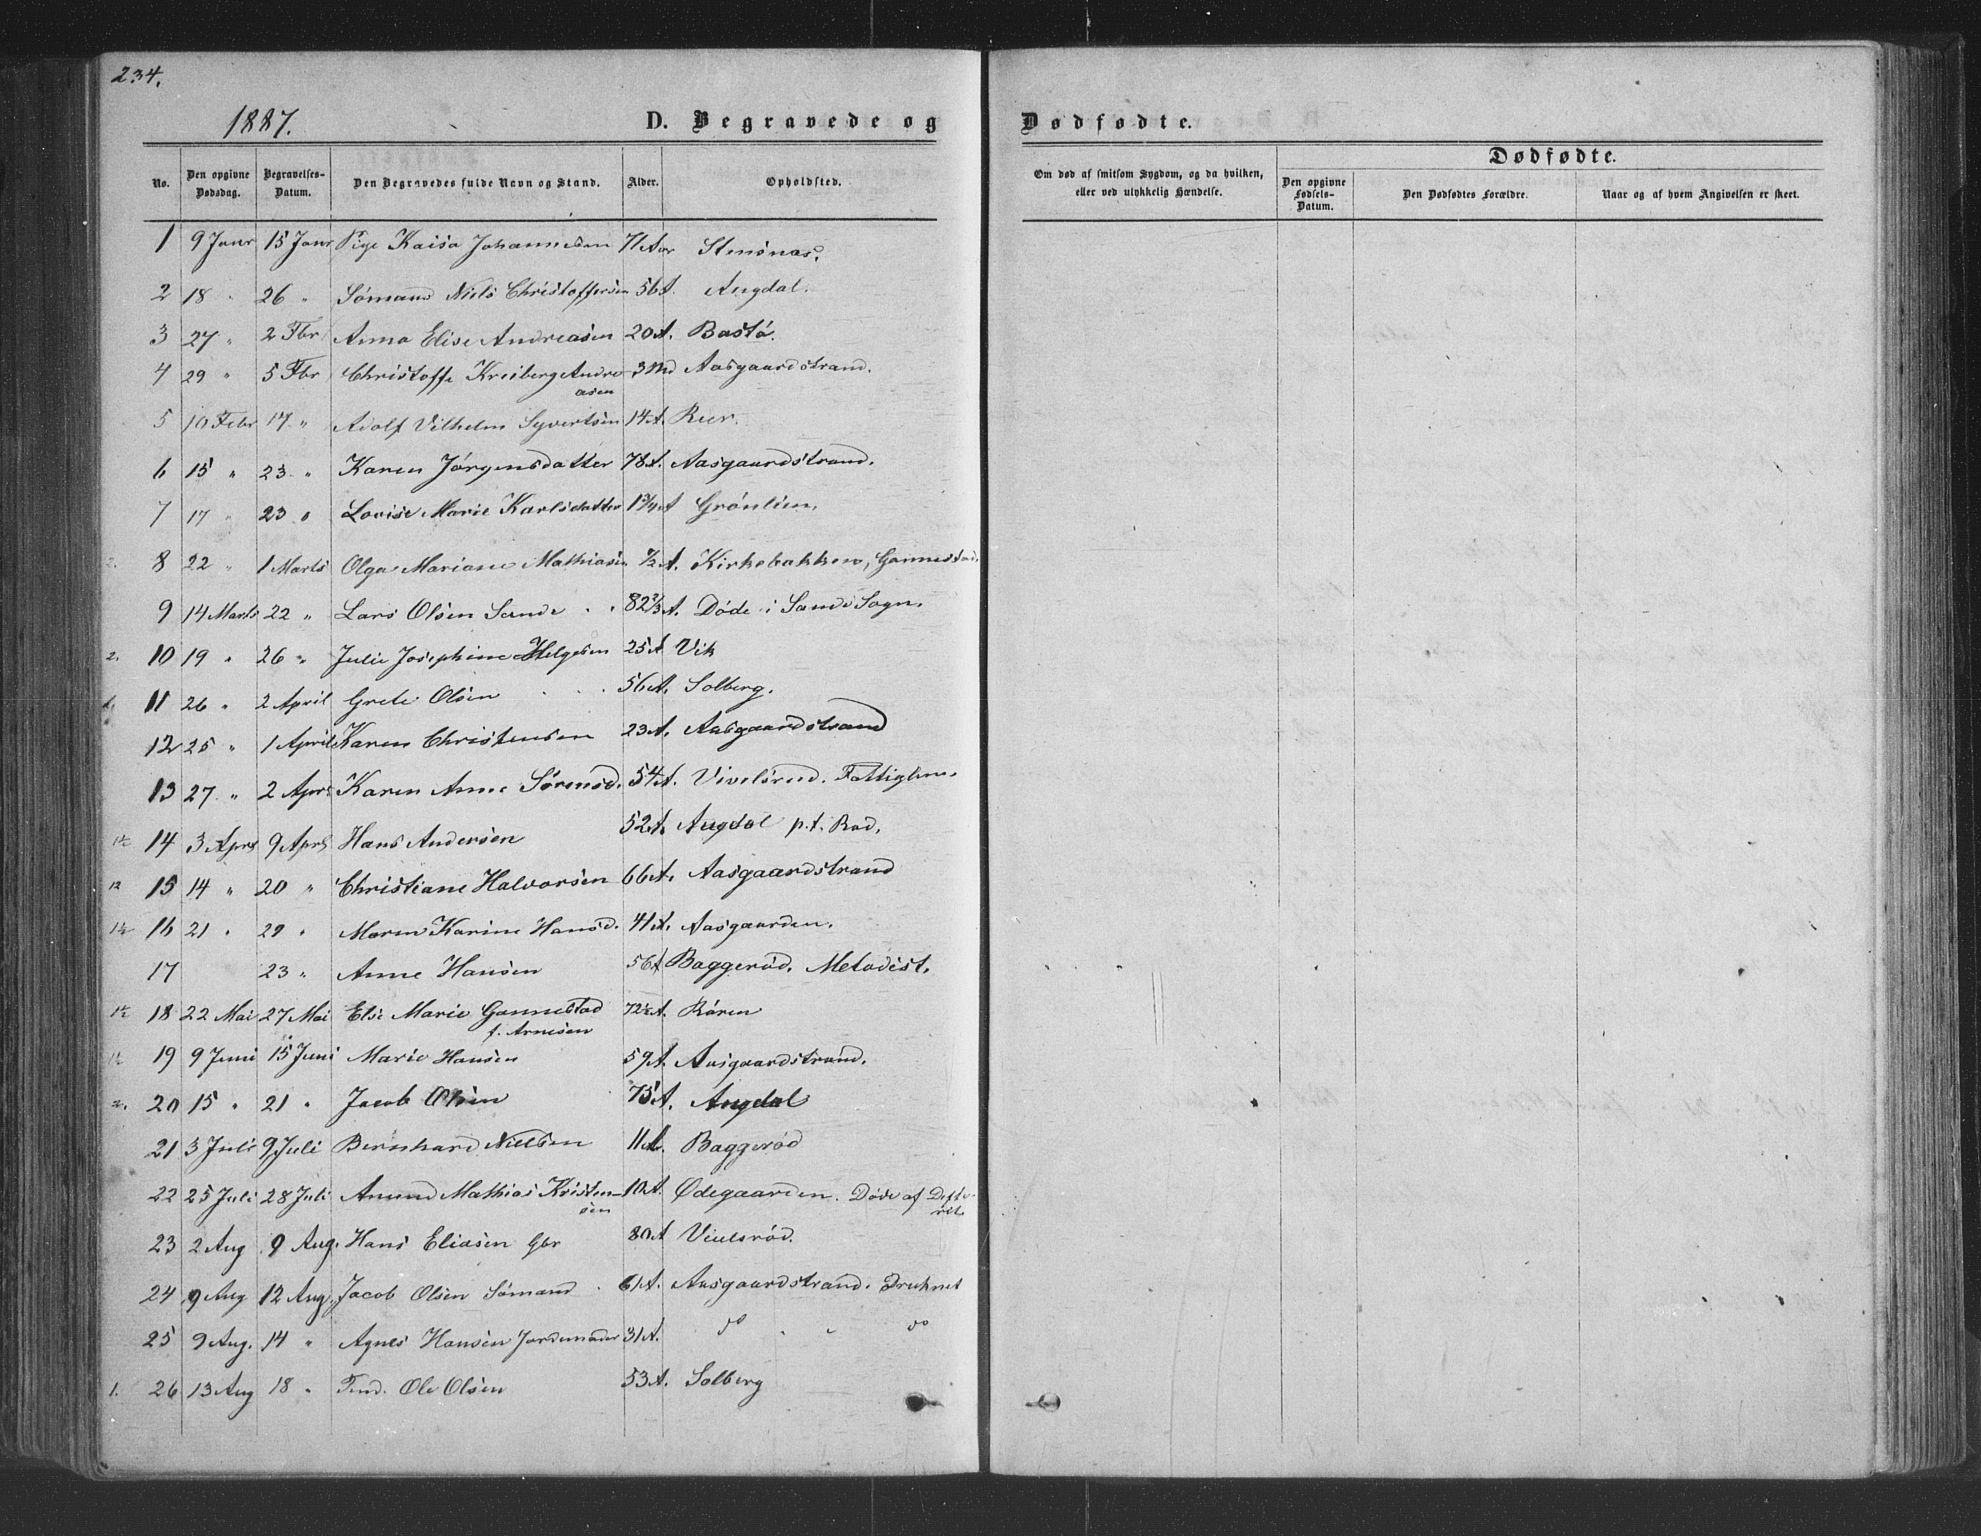 234.
1887.
D. Begravede og Dødfødte.
No. Den opgivne Dødsdag. Begravelses-Datum. Den Begravedes fulde Navn og Stand. Alder. Opholdsted.
Om død af smitsom Sygdom, og da hvilken, eller ved ulykkelig Hændelse.
Dødfødte.
Den opgivne Fødsels-Datum. Den Dødfødtes Forældre. Naar og af hvem Angivelsen er skeet.
1 9 Janr 15 Janr Pige Kaisa Johannesen 71 Aar Stensnæs.
2 18 " 26 " Sømand Niels Christoffersen 56 A. Augdal.
3 27 " 2 Fbr Anna Elise Andreasen 20 A. Bastø.
4 29 " 5 Fbr Christoffe Kreiberg Andreasen 3 Md Aasgaardstrand.
5 10 Febr 17 " Adolf Vilhelm Syvertsen 14 A. Rør.
6 15 " 23 " Karen Jørgensdatter 78 A. Aasgaardstrand.
7 17 " 23 " Lovise Marie Karlsdatter 1 3/4 A Grønlien.
8 22 " 1 Marts Olga Mariane Mathiasen 1/2 A. Kirkebakken, Gannestad.
9 14 Marts 22 " Lars Olsen Sande 82 2/3 A. Døde i Sande Sogn.
2. 10 19 " 26 " Julie Josephine Helgesen 25 A Vik
11 26 " 2 April Grete Olsen 56 A. Solberg.
12 25 " 1 April Karen Christensen 23 A. Aasgaardstrand
13 27 " 2 Apri Karen Anne Sørensd. 54 A. Vivelsrud. Fattiglem.
14 3 April 9 April Hans Andersen 52 A. Augdal p.t. Rød.
12 15 14 " 20 " Christiane Halvorsen 66 A. Aasgaardstrand
16 21 " 29 " Maren Karine Hansd. 41 A. Aasgaarden.
17 23 " Anne Hansen 56 A Baggerød. Metodist.
18 22 Mai 27 Mai Else Marie Gannestad 72 1/2 A. Røren
f. Arnesen
19 9 Juni 15 Juni Marie Hansen 59 A. Aasgaardstrand.
20 15 " 21 " Jacob Olsen 75 A. Augdal
21 3 Juli 9 Juli Bernhard Nielsen 11 A. Baggerød
22 25 Juli 28 Juli Amund Mathias Kristensen 10 A. Ødegaarden. Døde af Difterit
23 2 Aug 9 Aug. Hans Eliasen Gbr 80 A Vivelsrød.
24 9 Aug 12 Aug. Jacob Olsen Sømand 61 A. Aasgaardstrand. Druknet
25 9 Aug. 14 " Agnes Hansen Jordemoder 31 A. do " " do
1. 26 13 Aug 18 " Ole Olsen 53 A. Solberg